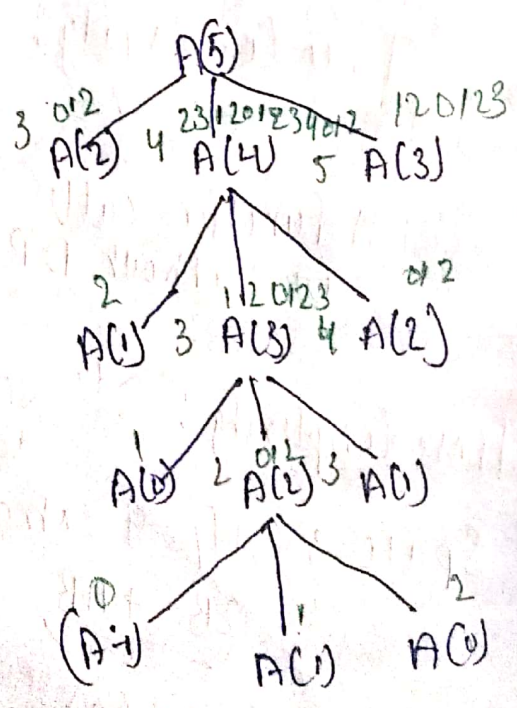 A(5)
3 012 231201234012 120123
A(2) 4 A(4) 5 A(3)
2 120123 012
A(1) 3 A(3) 4 A(2)
1 012
A(0) 2 A(2) 3 A(1)
0 1 2
(A-1) A(1) A(0)